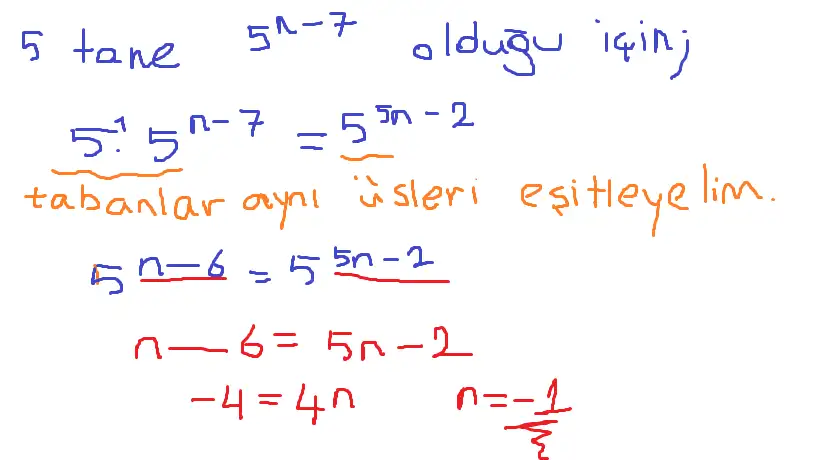 5 tane 5^{n-7} olduğu için;
5^{1} · 5^{n-7} = 5^{5n-2}
tabanlar aynı üsleri eşitleyelim.
5^{n-6} = 5^{5n-2}
n-6 = 5n-2
-4 = 4n n = -1